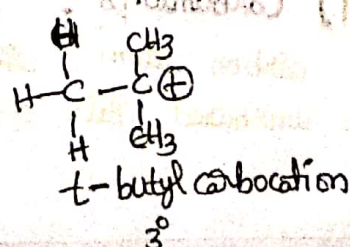 H CH3
H-C-C⊕
H CH3
t-butyl carbocation
3°